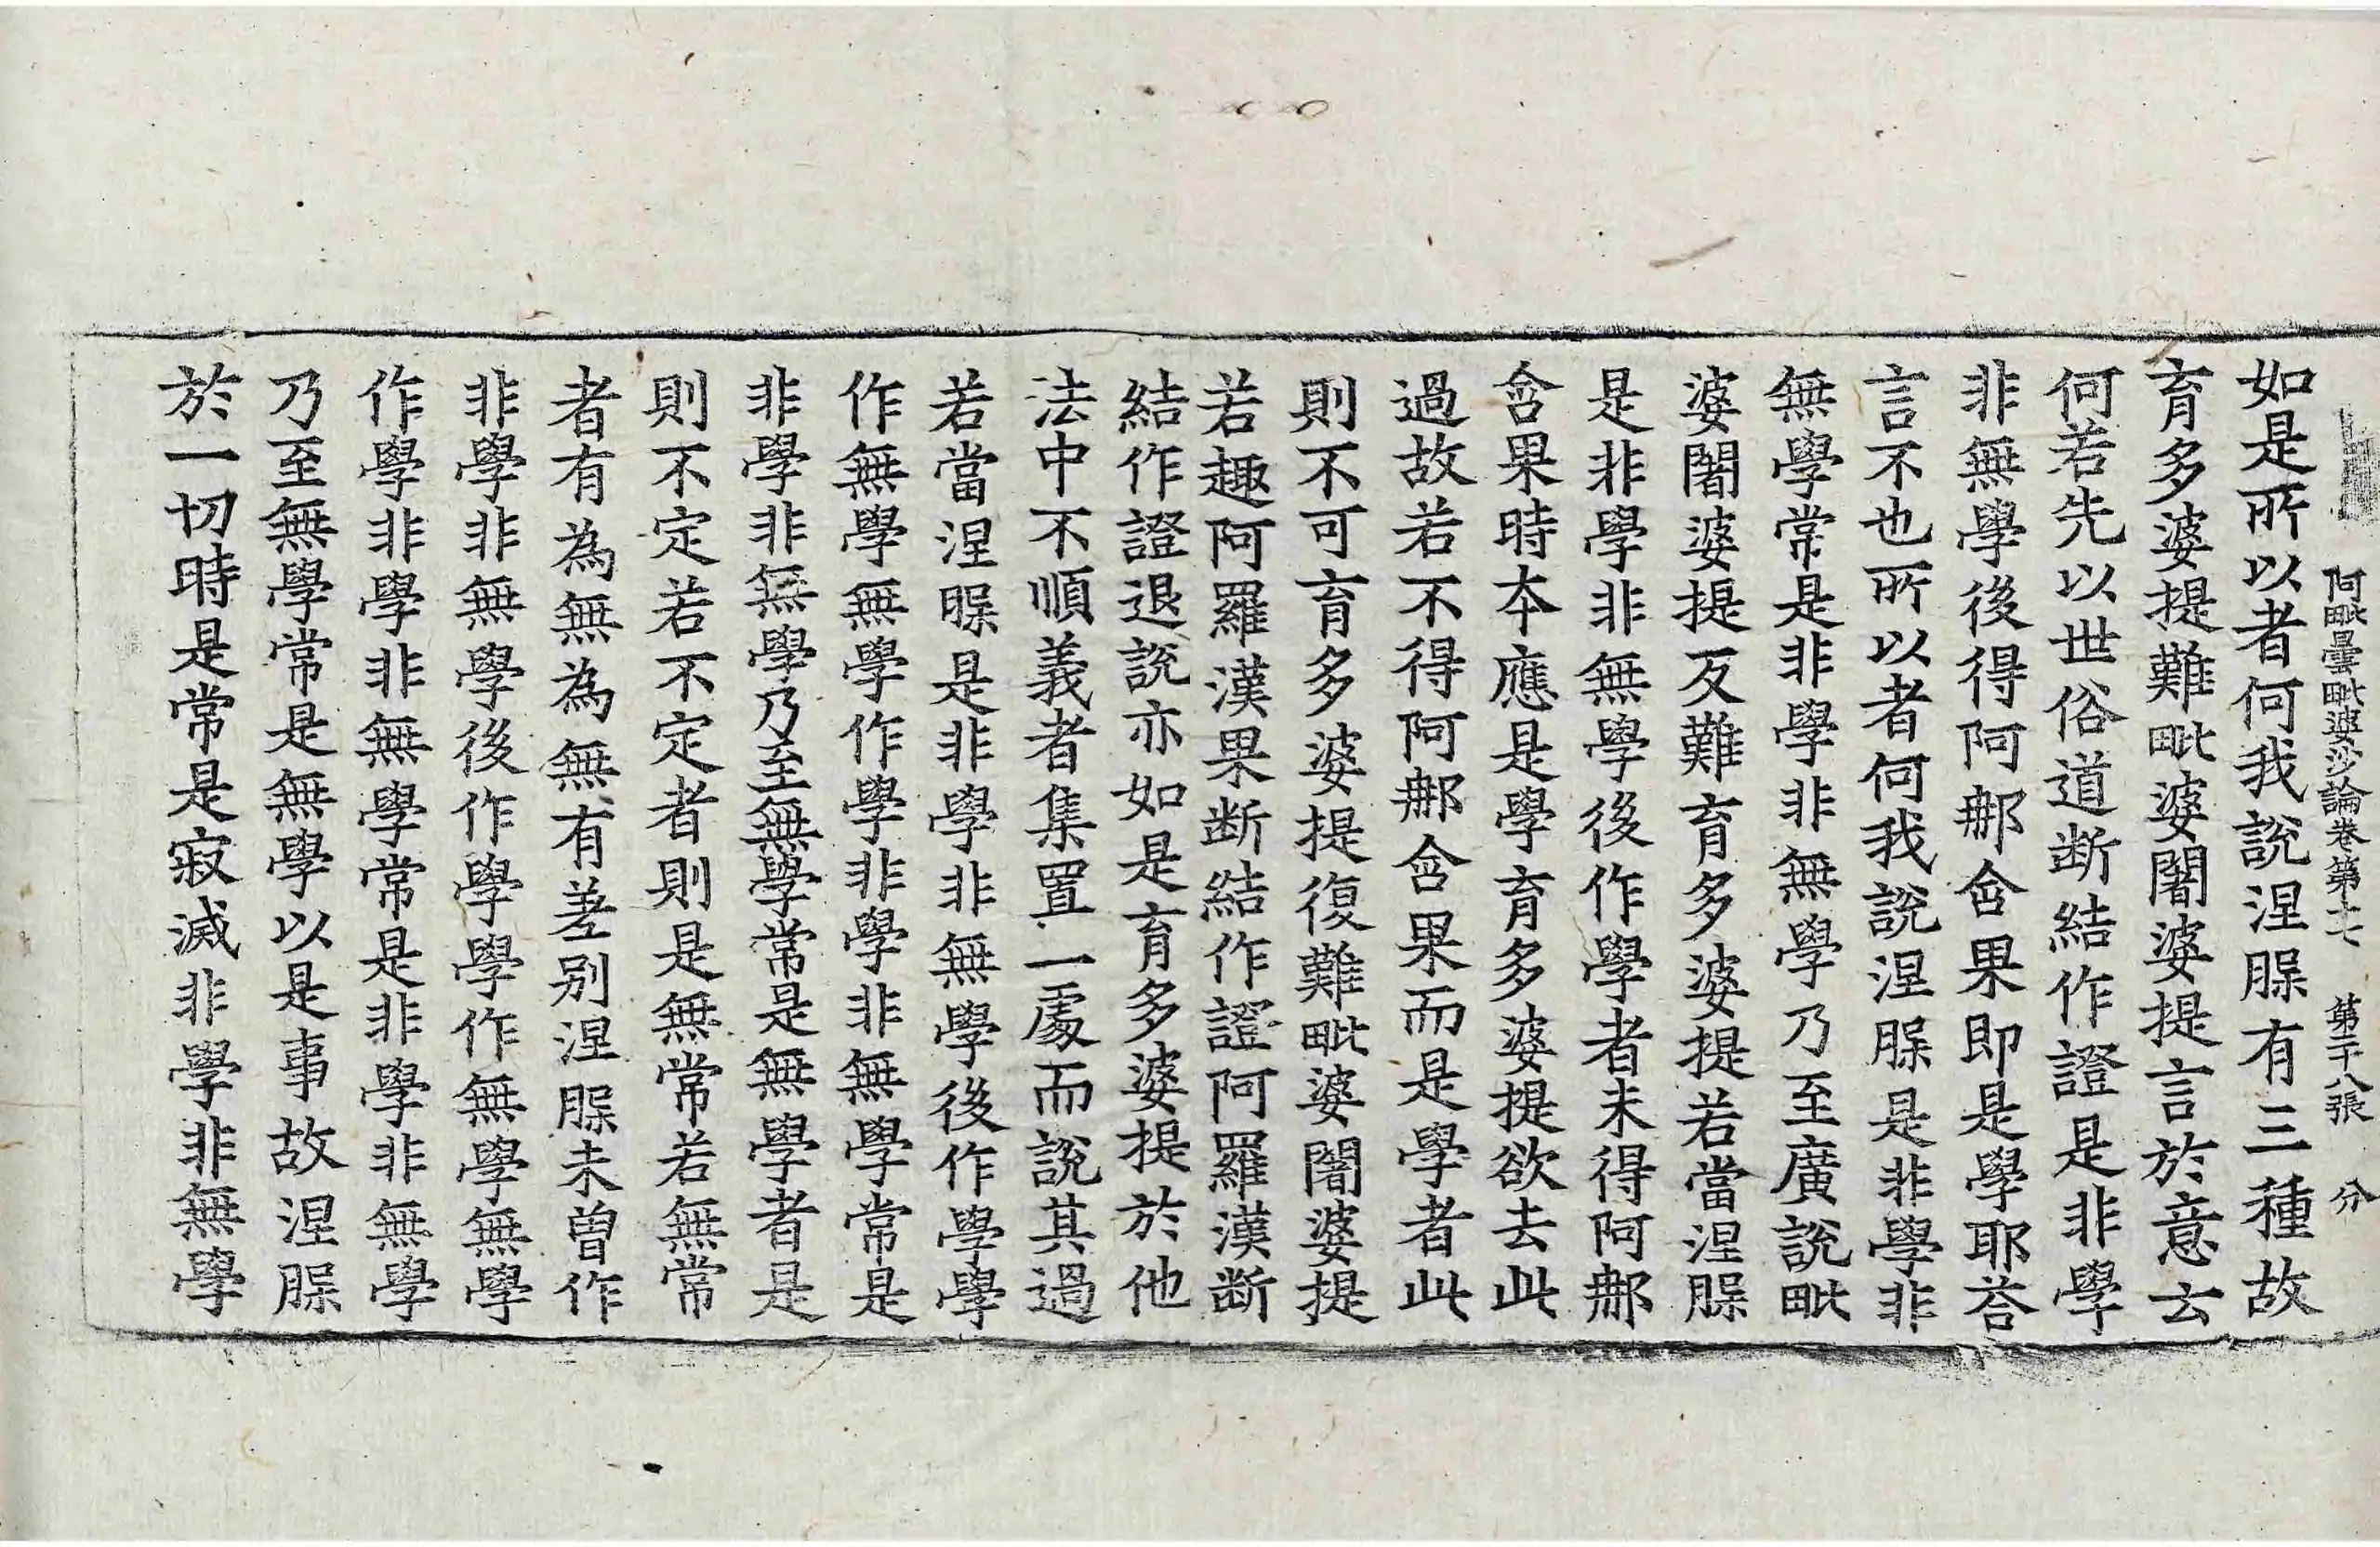 阿毗曇毗婆沙論卷第十七 第二十八張 分
如是所以者何我說涅槃有三種故
育多婆提難毗婆闍婆提言於意云
何若先以世俗道断結作證是非學
非無學後得阿那含果即是學耶荅
言不也所以者何我說涅槃是非學非
無學常是非學非無學乃至廣說毗
婆闍婆提反難育多婆提若當涅槃
是非學非無學後作學者未得阿那
含果時本應是學育多婆提欲去此
過故若不得阿那含果而是學者此
則不可育多婆提復難毗婆闍婆提
若趣阿羅漢果断結作證阿羅漢断
結作證退說亦如是育多婆提於他
法中不順義者集置一處而說其過
若當涅槃是非學非無學後作學學
作無學無學作學非學非無學常是
非學非無學乃至無學常是無學者是
則不定若不定者則是無常若無常
者有為無為無有差別涅槃未曾作
非學非無學後作學學作無學無學
作學非學非無學常是非學非無學
乃至無學常是無學以是事故涅槃
於一切時是常是寂滅非學非無學